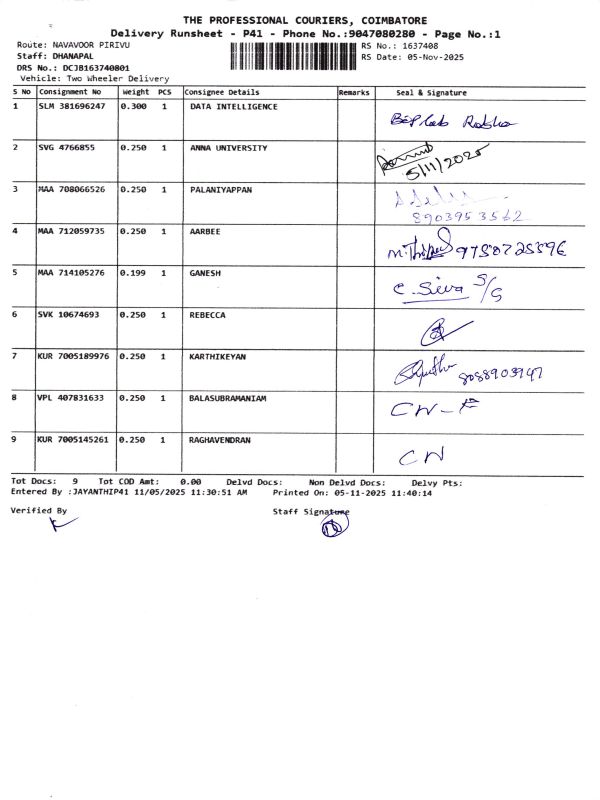 THE PROFESSIONAL COURIERS, COIMBATORE
Delivery Runsheet - P41 - Phone No.:9047080280 - Page No.:1
Route: NAVAVOOR PIRIVU RS No.: 1637408
Staff: DHANAPAL RS Date: 05-Nov-2025
DRS No.: DCJB163740801
Vehicle: Two Wheeler Delivery
S No Consignment No Weight PCS Consignee Details Remarks Seal & Signature
1 SLM 381696247 0.300 1 DATA INTELLIGENCE
2 SVG 4766855 0.250 1 ANNA UNIVERSITY 5/11/2025
3 MAA 708066526 0.250 1 PALANIYAPPAN
8903953562
4 MAA 712059735 0.250 1 AARBEE
5 MAA 714105276 0.199 1 GANESH C. Siva S/G
6 SVK 10674693 0.250 1 REBECCA
7 KUR 7005189976 0.250 1 KARTHIKEYAN 8088903947
8 VPL 407831633 0.250 1 BALASUBRAMANIAM
9 KUR 7005145261 0.250 1 RAGHAVENDRAN CN
Tot Docs: 9 Tot COD Amt: 0.00 Delvd Docs: Non Delvd Docs: Delvy Pts:
Entered By :JAYANTHIP41 11/05/2025 11:30:51 AM Printed On: 05-11-2025 11:40:14
Verified By Staff Signature